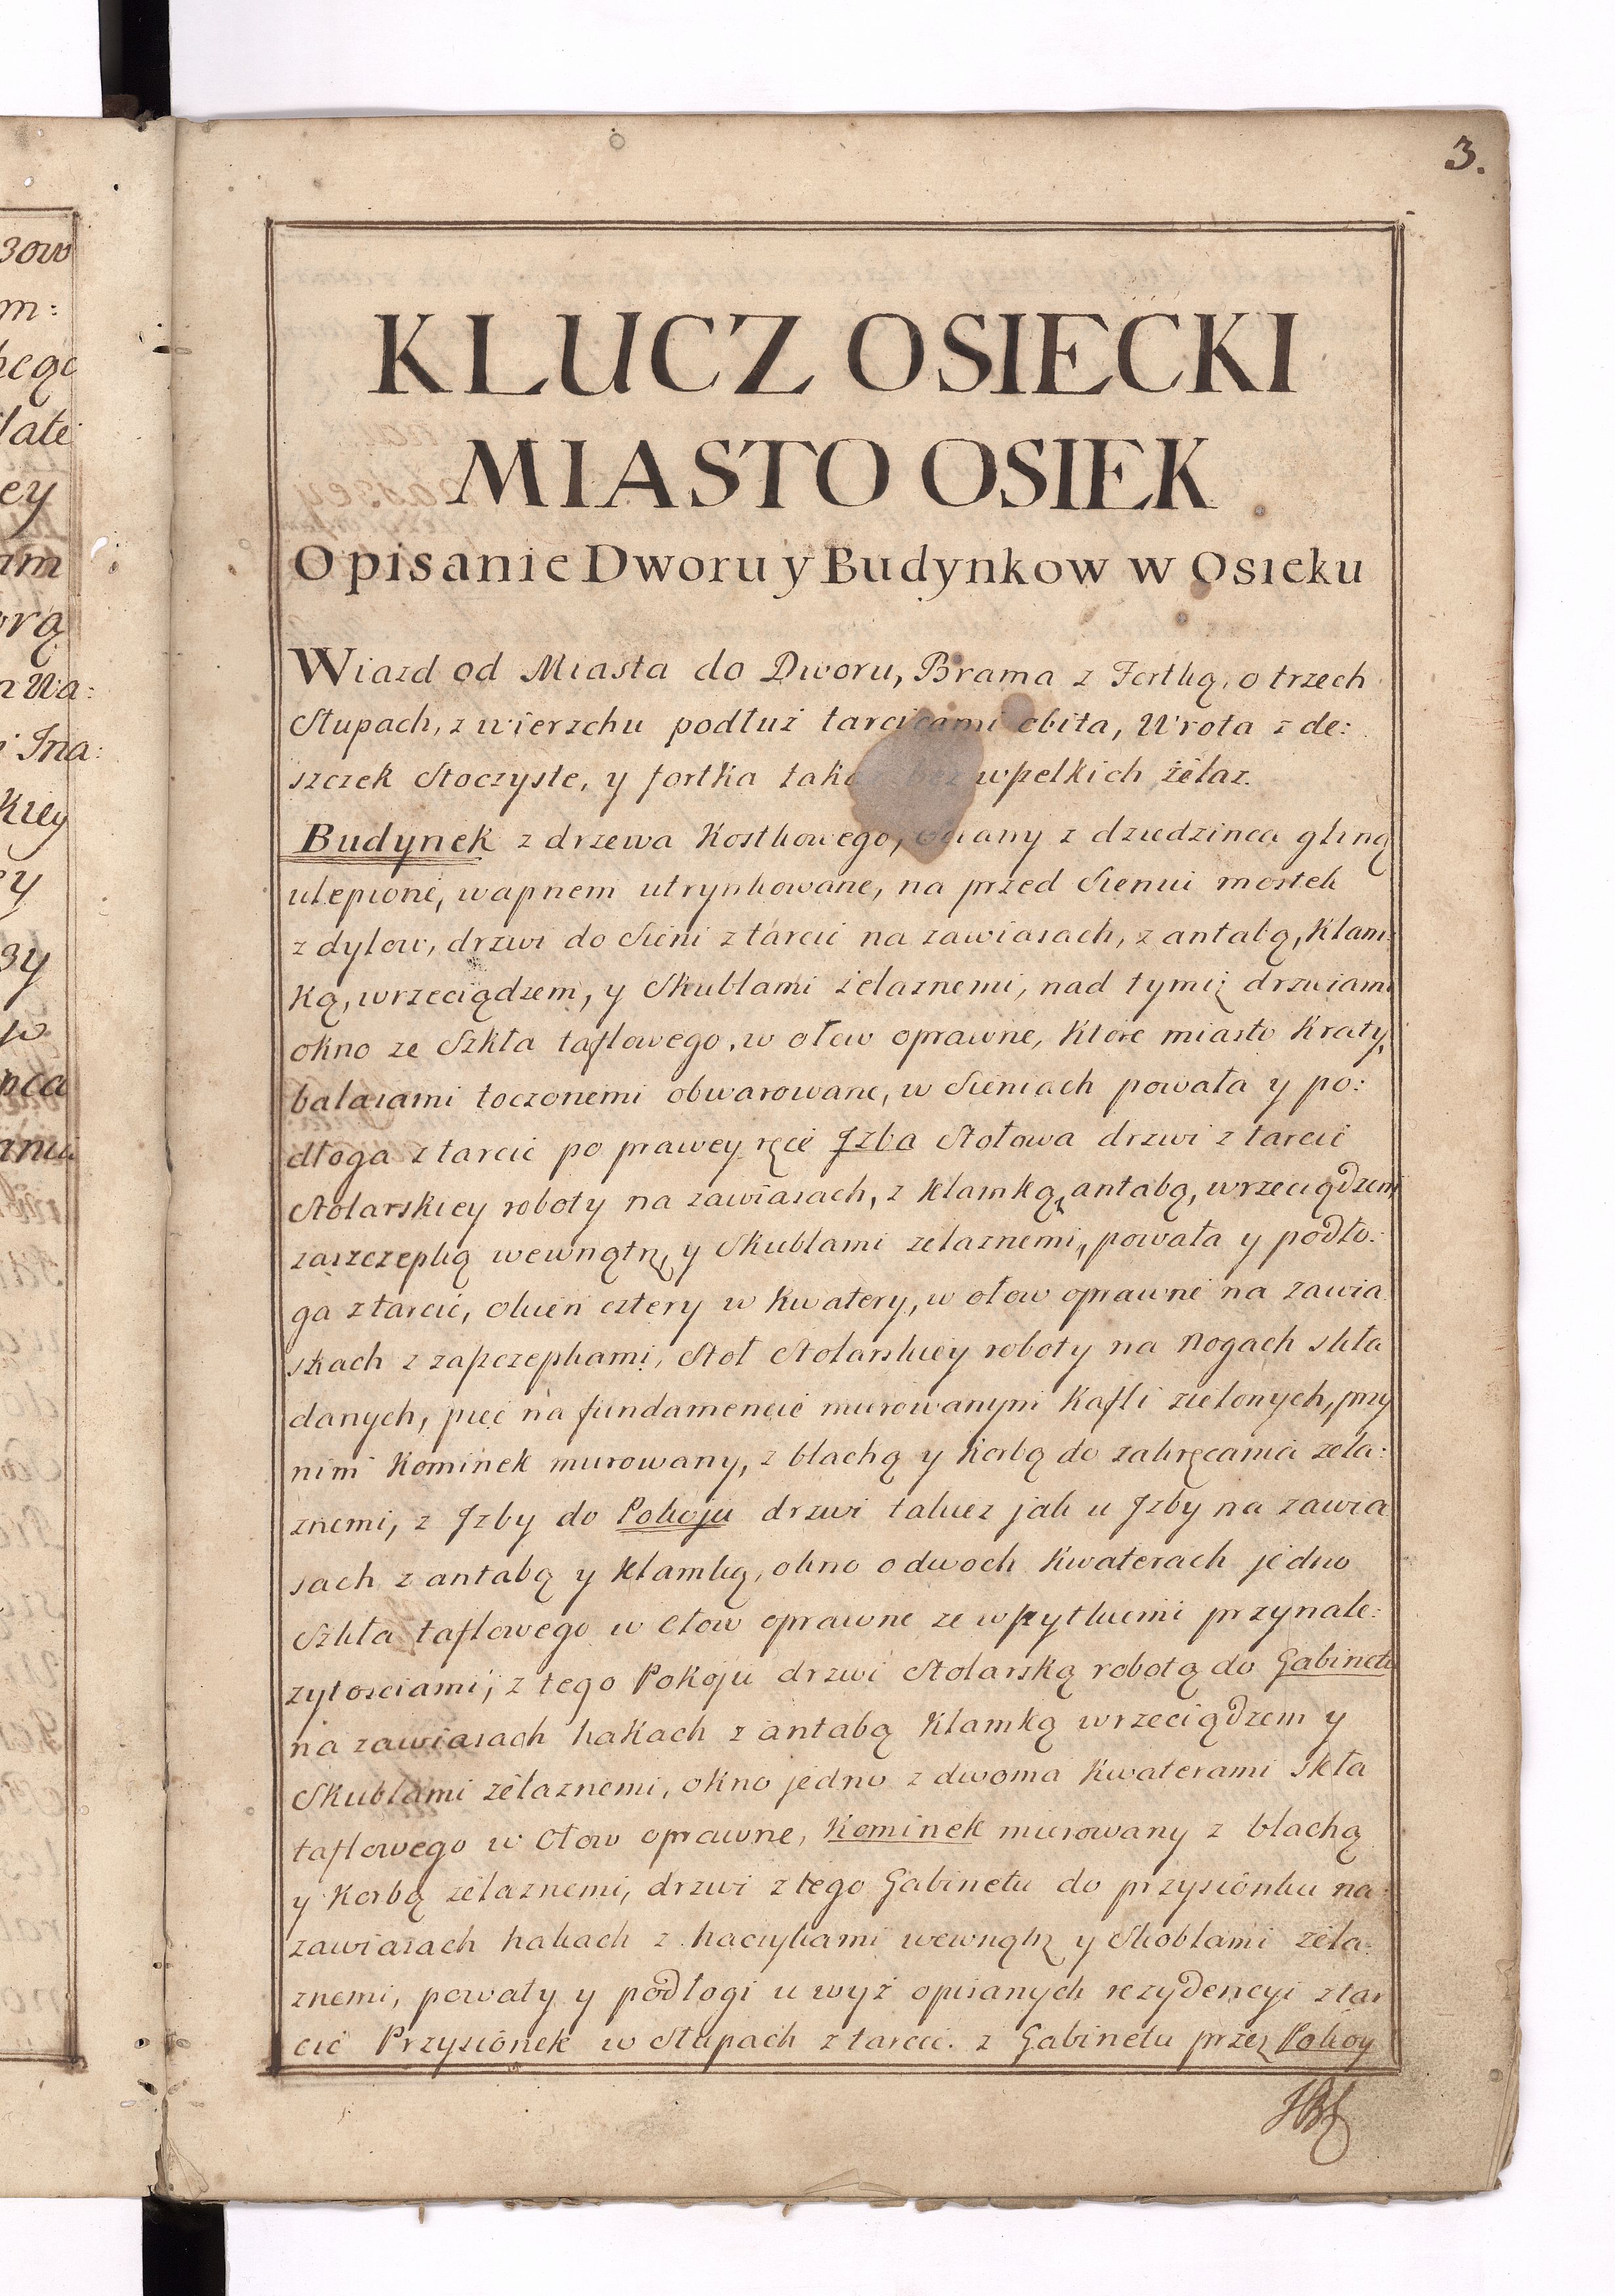 3.
KLUCZ OSIECKI
MIASTO OSIEK
Opisanie Dworu y Budynkow w Osieku
Wiazd od Miasta do Dworu, Brama z Fortką, o trzech
Słupach, z wierzchu podłuż tarcicami obita, Wrota z de:
szczek Stoczyste, y fortka taka bez wszelkich żelaz.
Budynek z drzewa Kostkowego, Sciany z dziedzinca gliną
ulepione, wapnem utrynkowane, na przed Sienui mostek
z dylow, drzwi do Sieni z tarcic na zawiasach, z antabą, Klam:
ką, wrzeciądzem, y Skublami żelaznemi, nad tymiż drzwiami
okno ze Szkła taflowego, w ołow oprawne, Ktore miasto Kraty,
balasami toczonemi obwarowane, w Sieniach powała y po:
dłoga z tarcic po prawey ręce Jzba Stołowa drzwi z tarcic
Stolarskiey roboty na zawiasach, z Klamką, antabą, wrzeciądzem
zaszczepką wewnątrz, y Skublami zelaznemi, powała y podło:
ga z tarcic, okien cztery w Kwatery, w ołow oprawne na zawia
skach z zaszczepkami, Stoł Stolarskiey roboty na Nogach skła
danych, piec na fundamencie murowanym Kafli zielonych, przy
nim Kominek murowany, z blachą y Korbą do zakręcania zela:
znemi, z Jzby do Pokoju drzwi takiez jak u Jzby na zawia
sach z antabą y Klamką, okno o dwoch Kwaterach jedno
Szkła taflowego w Ołow oprawne ze wszytkiemi przynale:
zytosciami; z tego Pokoju drzwi Stolarską robotą do Gabinetu
na zawiasach hakach z antabą Klamką wrzeciądzem y
Skublami żelaznemi, okno jedno z dwoma Kwaterami Skła
taflowego w Ołow oprawne, Kominek murowany z blachą
y Korbą zelaznemi, drzwi z tego Gabinetu do przysionku na
zawiasach hakach z haczykami wewnątrz y Skoblami zela:
znemi, powały y podłogi u wyż opisanych rezydencyi z tar
cic Przysionek w Słupach z tarcic. z Gabinetu przez Pokoy